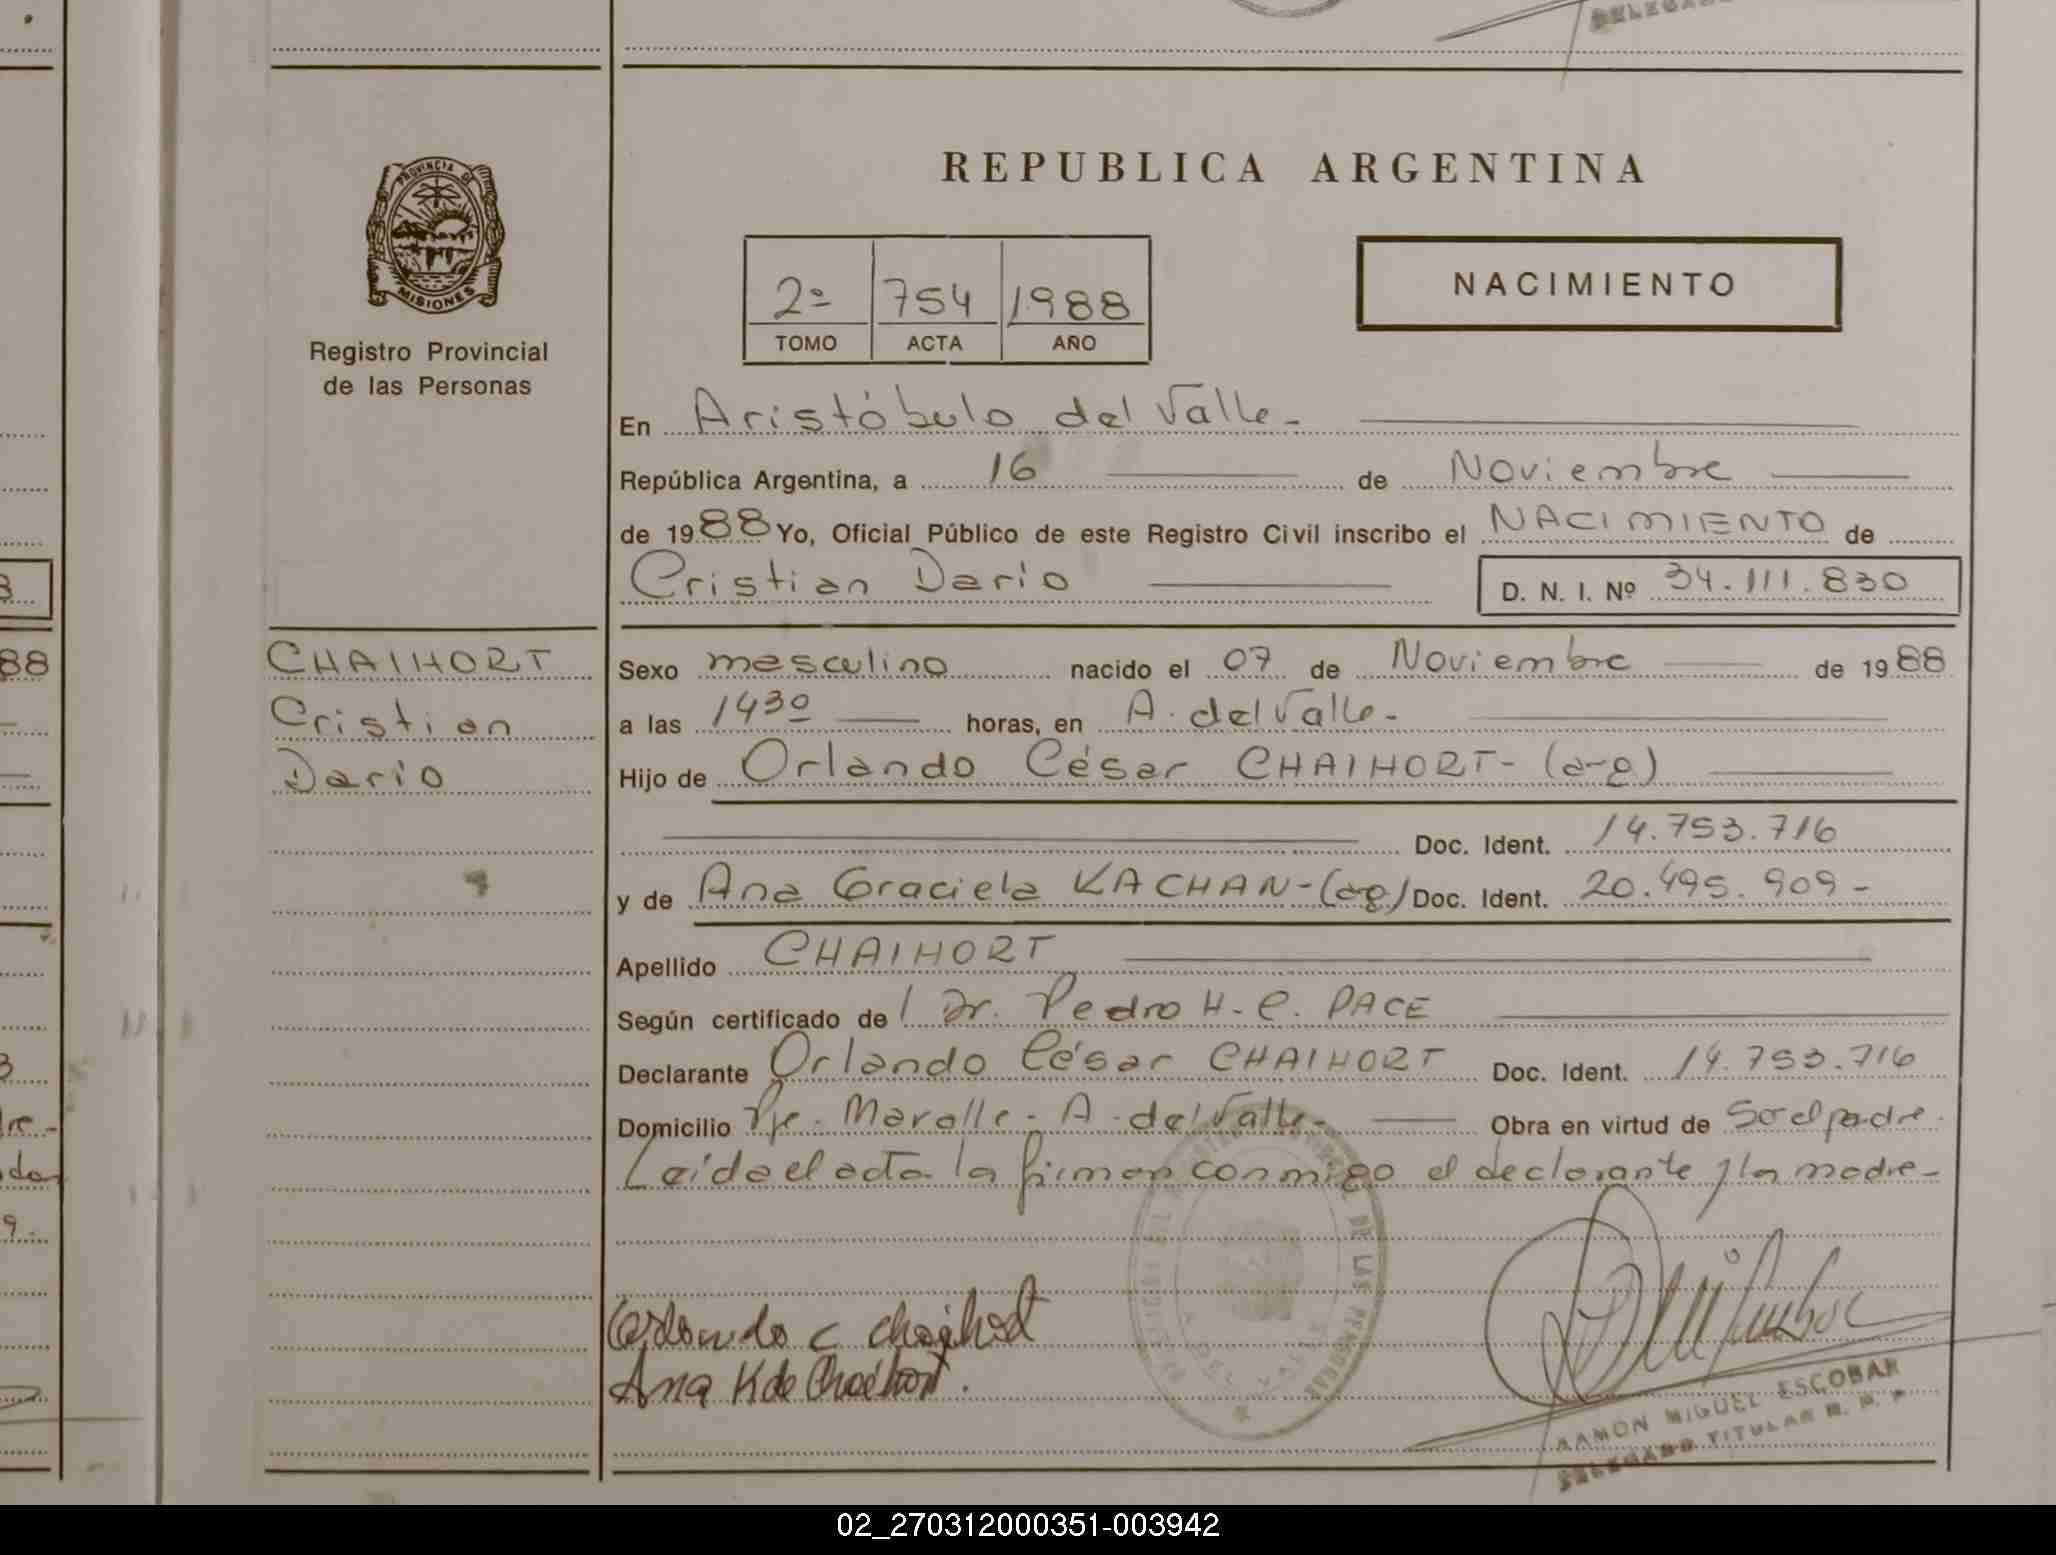 REPUBLICA ARGENTINA
PROVINCIA DE
MISIONES
Registro Provincial
de las Personas
2º 754 1988
TOMO ACTA AÑO
NACIMIENTO
En Aristóbulo del Valle.-
República Argentina, a 16 de Noviembre
de 1988 Yo, Oficial Público de este Registro Civil inscribo el NACIMIENTO de
Cristian Dario D. N. I. Nº 34.111.830
CHAIHORT
Cristian
Dario
Sexo masculino nacido el 07 de Noviembre de 1988
a las 1430 horas, en A. del Valle.-
Hijo de Orlando César CHAIHORT- (arg)
Doc. Ident. 14.753.716
y de Ana Graciela KACHAN-(arg) Doc. Ident. 20.495.909-
Apellido CHAIHORT
Según certificado de Dr. Pedro H. C. PACE
Declarante Orlando César CHAIHORT Doc. Ident. 14.753.716
Domicilio A. del Valle.- Obra en virtud de So el padre.
Leída el acta la firman conmigo el declarante y la madre-
Orlando C Chaihort
Ana K de Chaihort.
DE LAS PERSONAS
RAMON MIGUEL ESCOBAR
DELEGADO TITULAR R. P. P
88
02_270312000351-003942